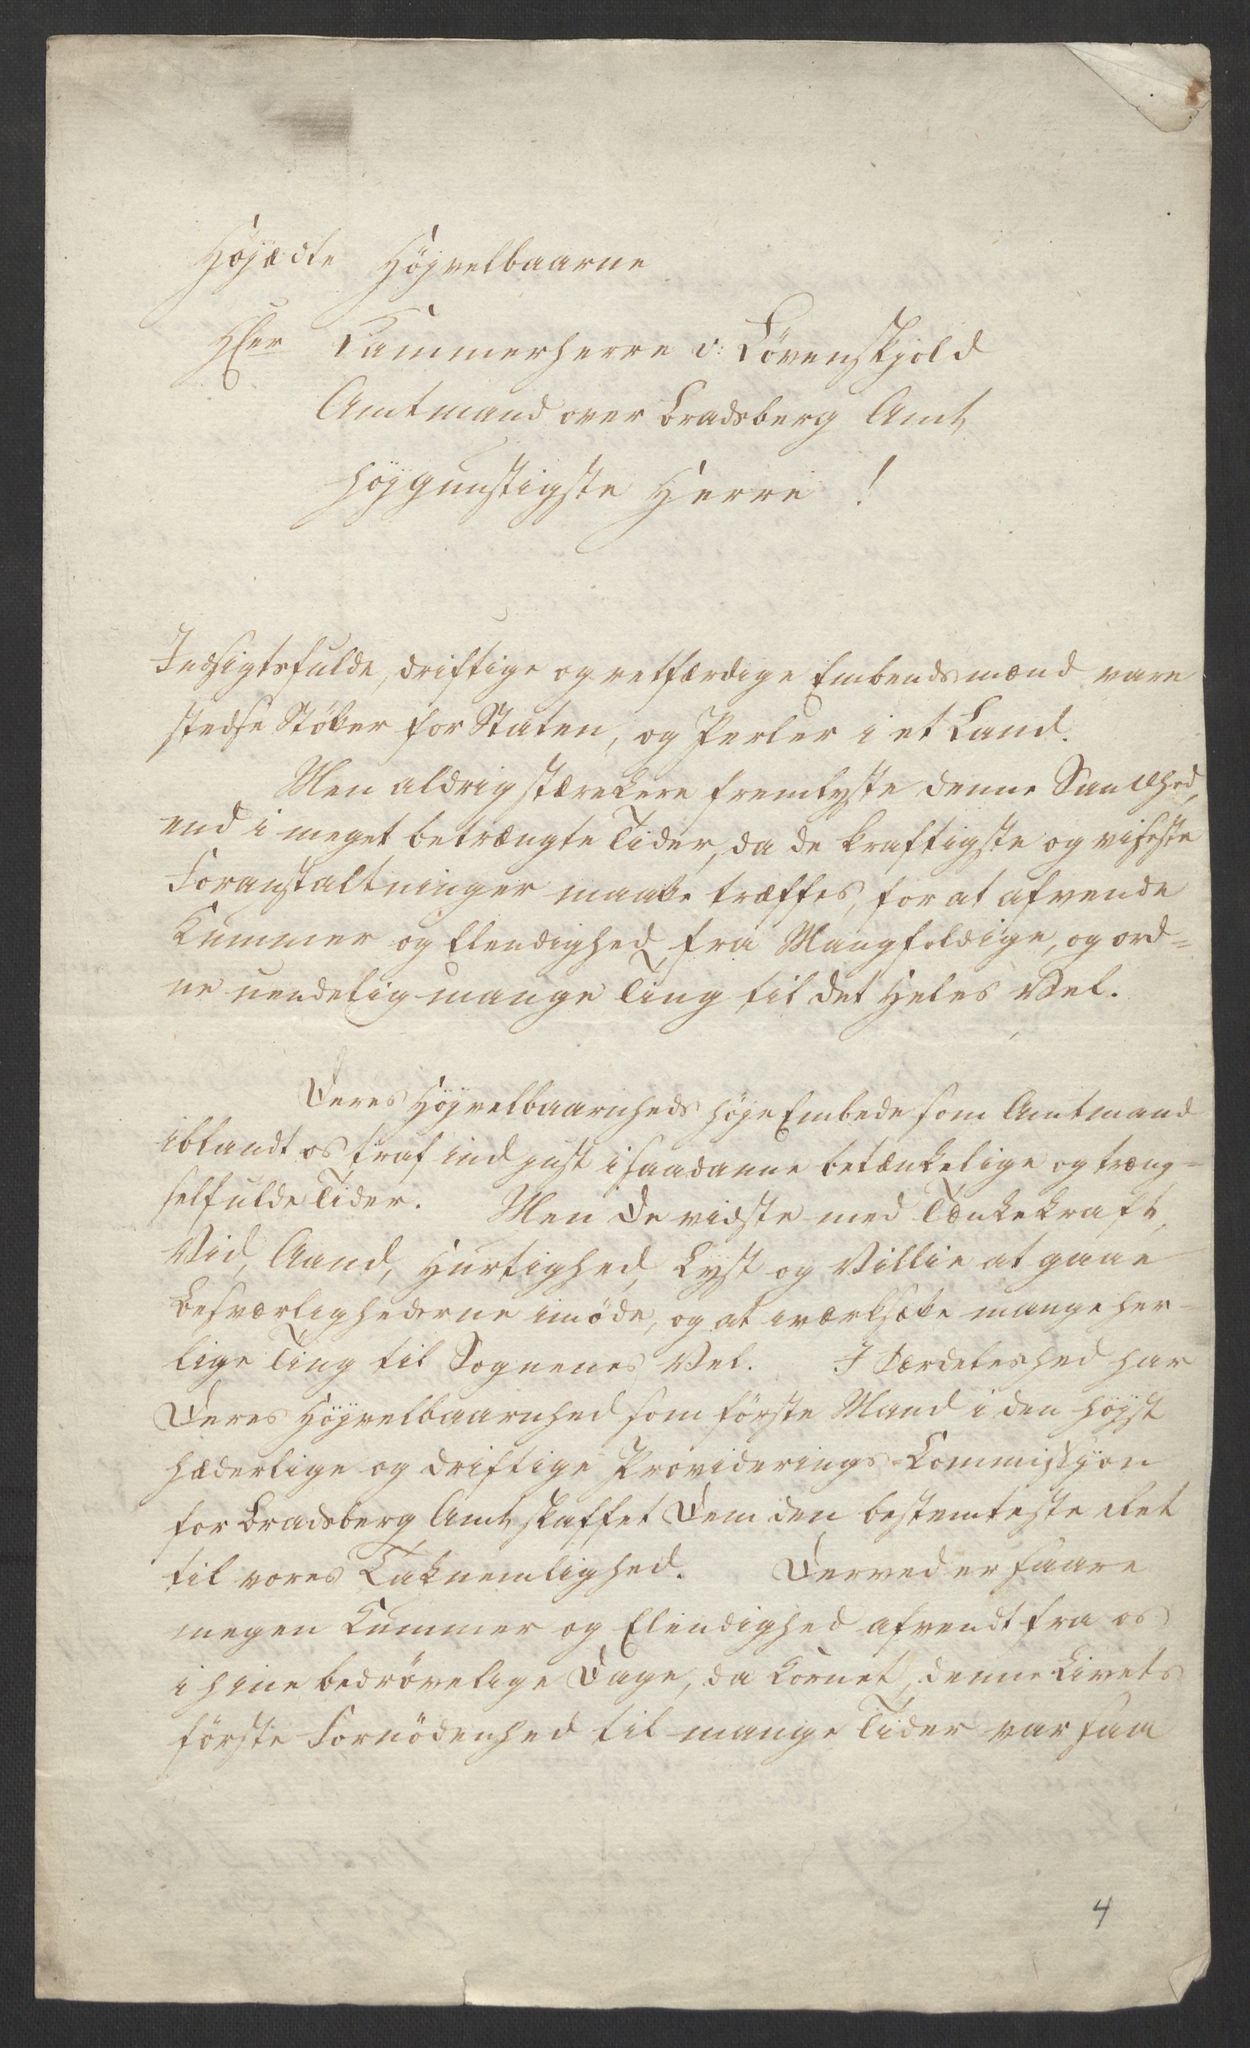 Højædle Højvelbaarne
Hrer Kammerherre v: Løvenskjold
Amtmand over Bradsberg Amt,
højgunstigste Herre !
Indsigtsfulde, driftige og retfærdige Embedsmænd vare
stedse Støtter for Staten, og Perler i et Land.
Men aldrig stærekere fremlyste denne Sandhed,
end i meget betrængte Tider, da de kraftigste og viseste
Foranstaltninger maatte træffes, for at afvende
Kummer og Elendighed fra Mangfoldige, og ord=
ne uendelig mange Ting til det Heles Vel.
Deres Højvelbaarnheds høje Embede som Amtmand
iblandt os, traf ind just i saadanne betænkelige og træng-
selfulde Tider. Men De vidste med Tænkekraft,
Vid, Aand, Hurtighed, Lyst og Villie at gaae
Besværlighederne imøde, og at iværksætte mange her-
lige Ting til Sognenes Vel. I Særdeleshed har
Deres Højvelbaarnhed som første Mand i den højst
hæderlige og driftige Providerings-Commissjon
for Bradsberg Amt, skaffet Dem den bestemteste Ret
til vores Taknemlighed. Derved er saare
megen Kummer og Elendighed afvendt fra os
i hine bedrøvelige Dage, da Kornet, denne Livets
første Fornødenhed til mange Tider var saa
4